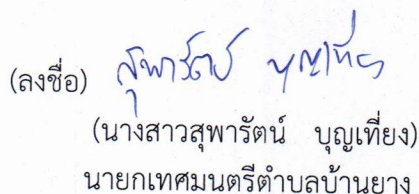 (ลงชื่อ) สุพารัตน์ บุญเที่ยง
(นางสาวสุพารัตน์ บุญเที่ยง)
นายกเทศมนตรีตำบลบ้านยาง